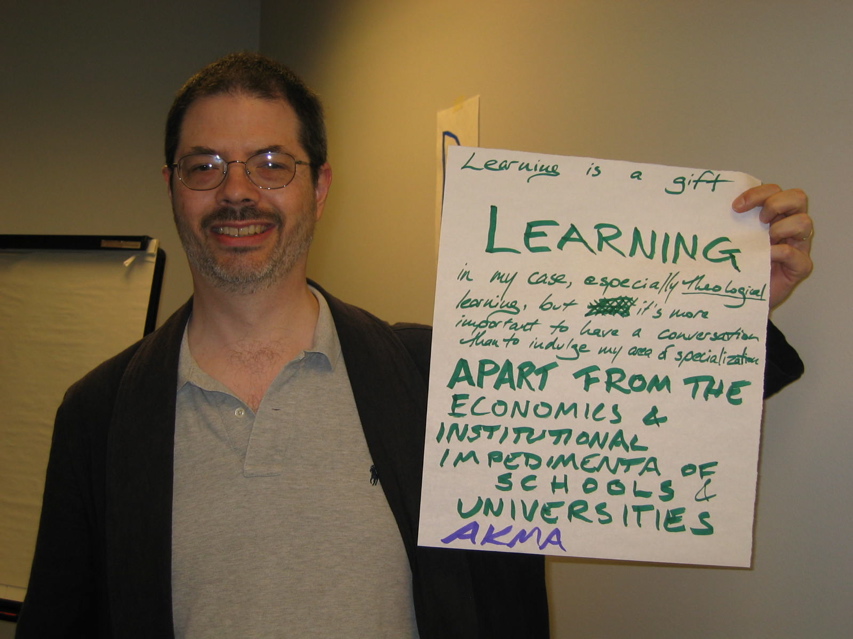 Learning is a gift
LEARNING
in my case, especially theological
learning, but it's more
important to have a conversation
than to indulge my area of specialization
APART FROM THE
ECONOMICS &
INSTITUTIONAL
IMPEDIMENTA OF
SCHOOLS &
UNIVERSITIES
AKMA